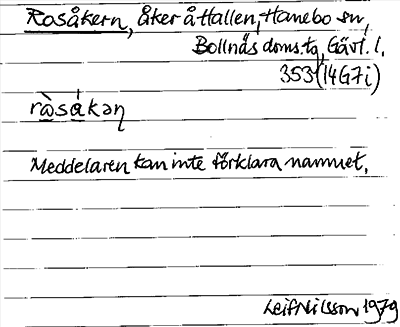 Rosåkern, åker å Hallen, Hanebo sn,
Bollnäs doms.tg, Gävl. l.
353 (14G7i)
rὰsákəɳ
Meddelaren kan inte förklara namnet.
Leif Nilsson 1979